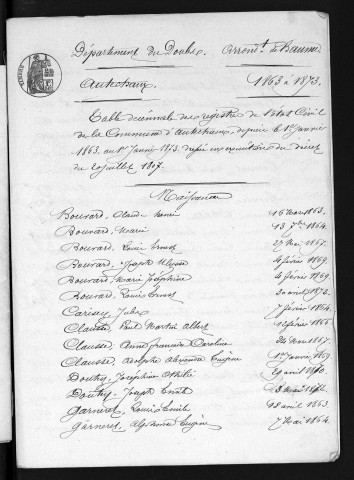 Département du Doubs. Arrond.t de Baume
Autechaux. 1863 à 1873.
Table décennale des registres de l'état Civil
de la Commune d'Autechaux, depuis le 1er janvier
1863 au 1er Janvier 1873 dressée en exécution du décret
du 20 juillet 1807.
Naissances
Bouvard, Claude 16 Mars 1863.
Bouvard, Marie 13 7bre 1864.
Bouvard, Louis Ernest 27 Mai 1867.
Bouvard, Joseph Ulysse 4 février 1869.
Bouvard Marie Joséphine 4 février 1869.
Bouvard, Louis Ernest 30 avril 1872.
Jules 7 février 1864.
Clausse, Paul Martin Albert 12 février 1866
Clausse, Anne Francoise Caroline 24 Mars 1867.
Clausse Adolphe Alexandre Eugène 1er janvier 1869.
Douhy, Joséphine Othilie 29 avril 1870.
Douhy, Joseph Emile 1872.
Garneret, Louis Emile 18 avril 1863.
Garneret, Alphonse Eugène 7 Mai 1864.